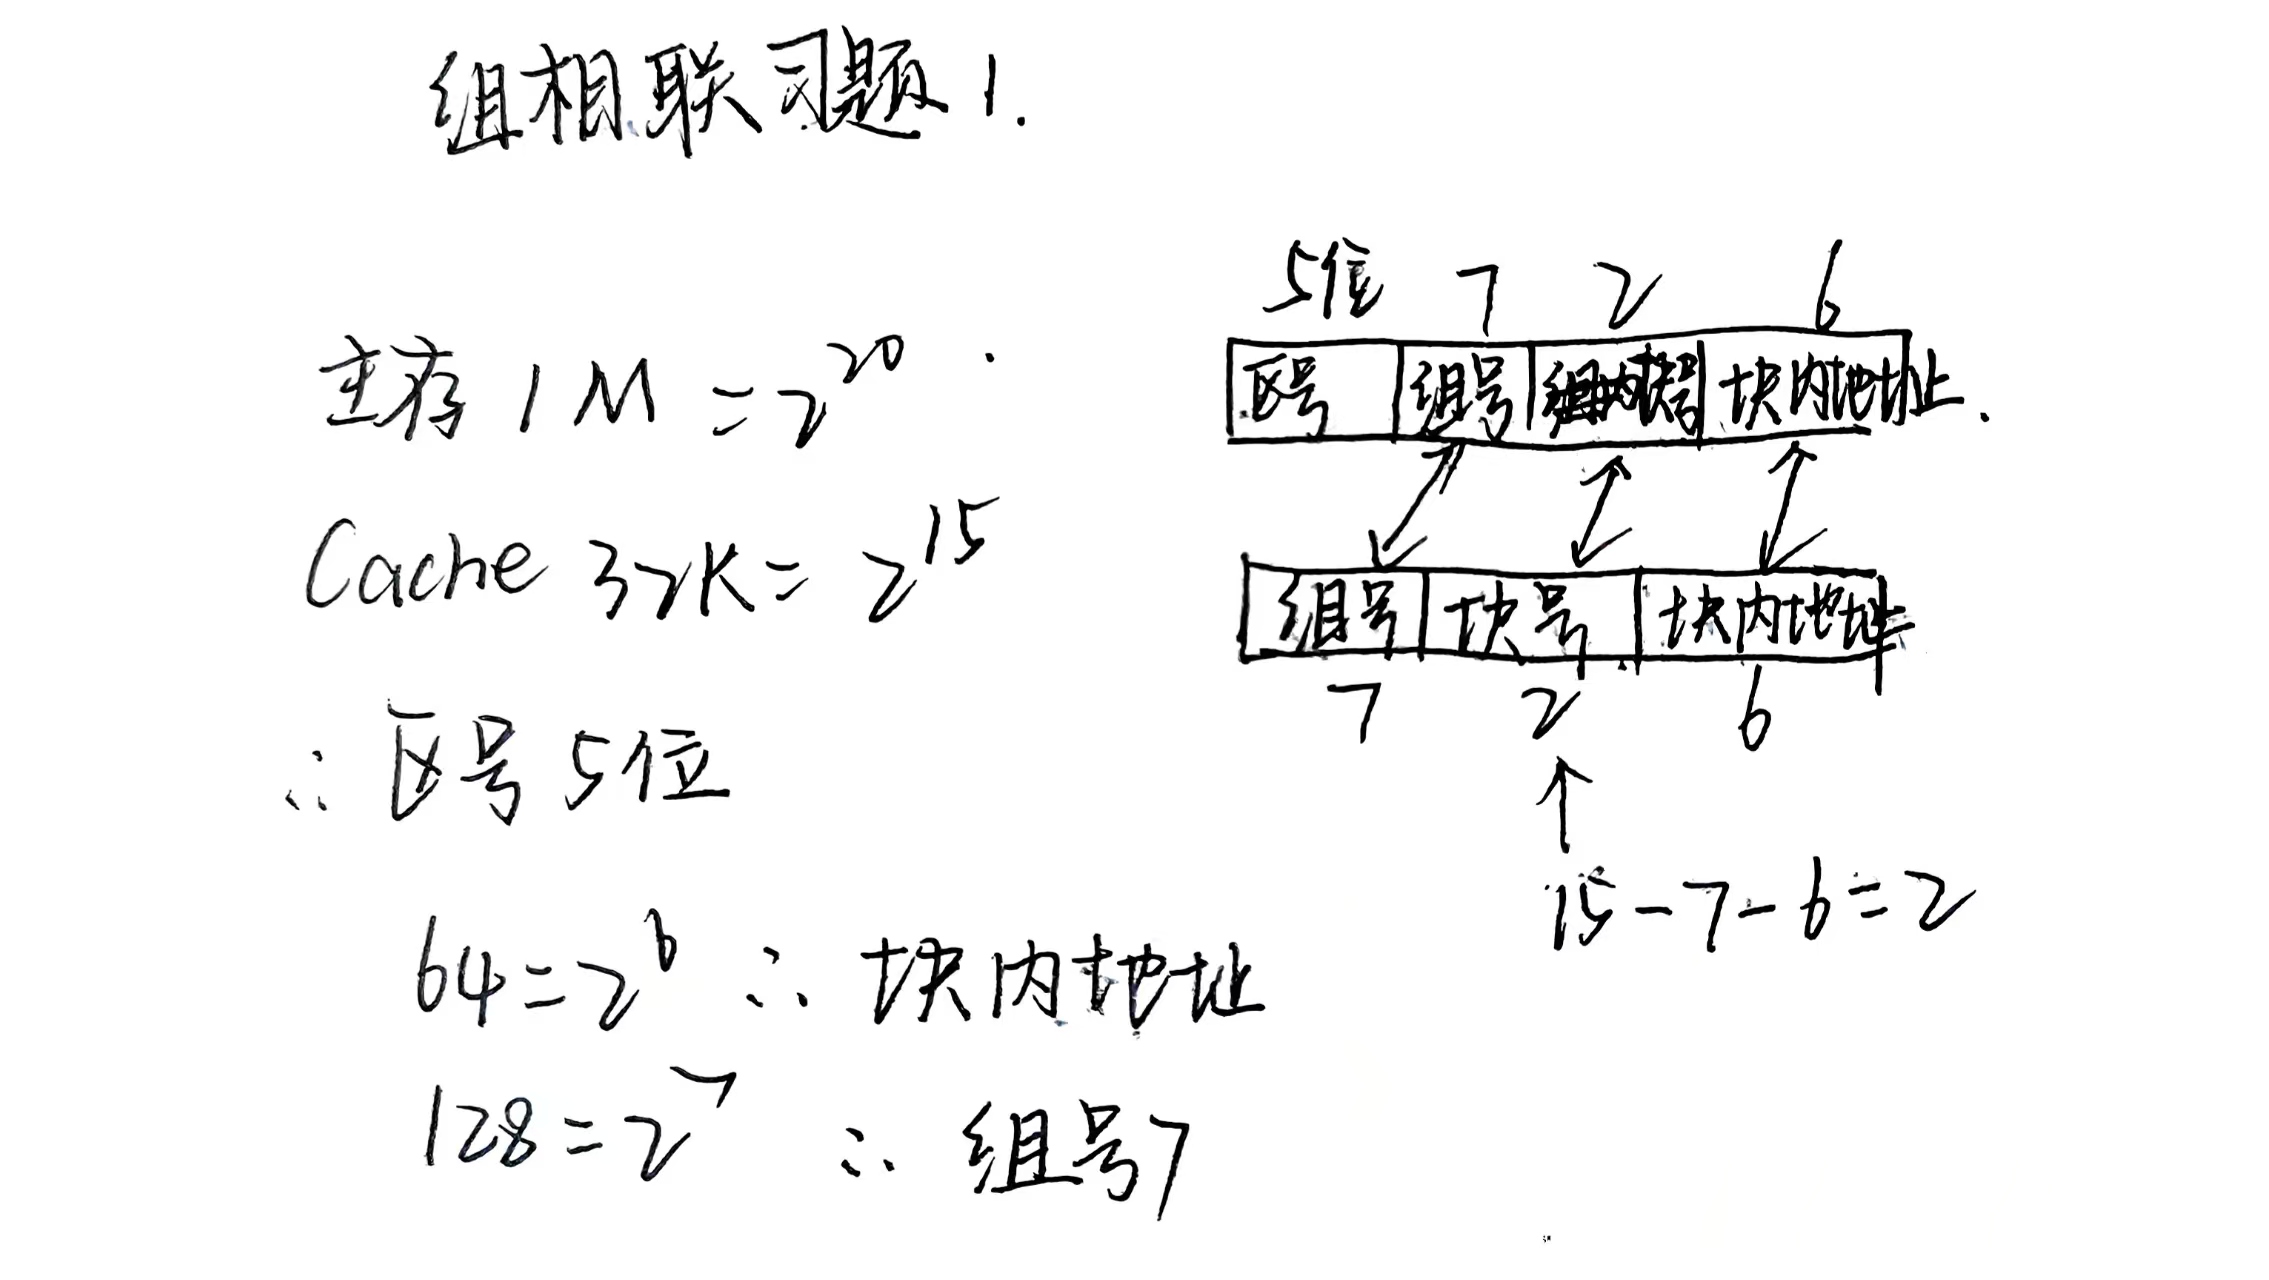 组相联习题1.
主存1M=2^20
Cache 32K=2^15
∴区号5位
64=2^6 ∴块内地址
128=2^7 ∴组号7
5位 7 2 6
区号 组号 组内块号 块内地址.
组号 块号 块内地址
7 2 6
↑
15-7-6=2